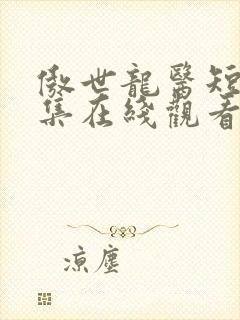 傲世龍醫短
集在綫觀看
涼塵